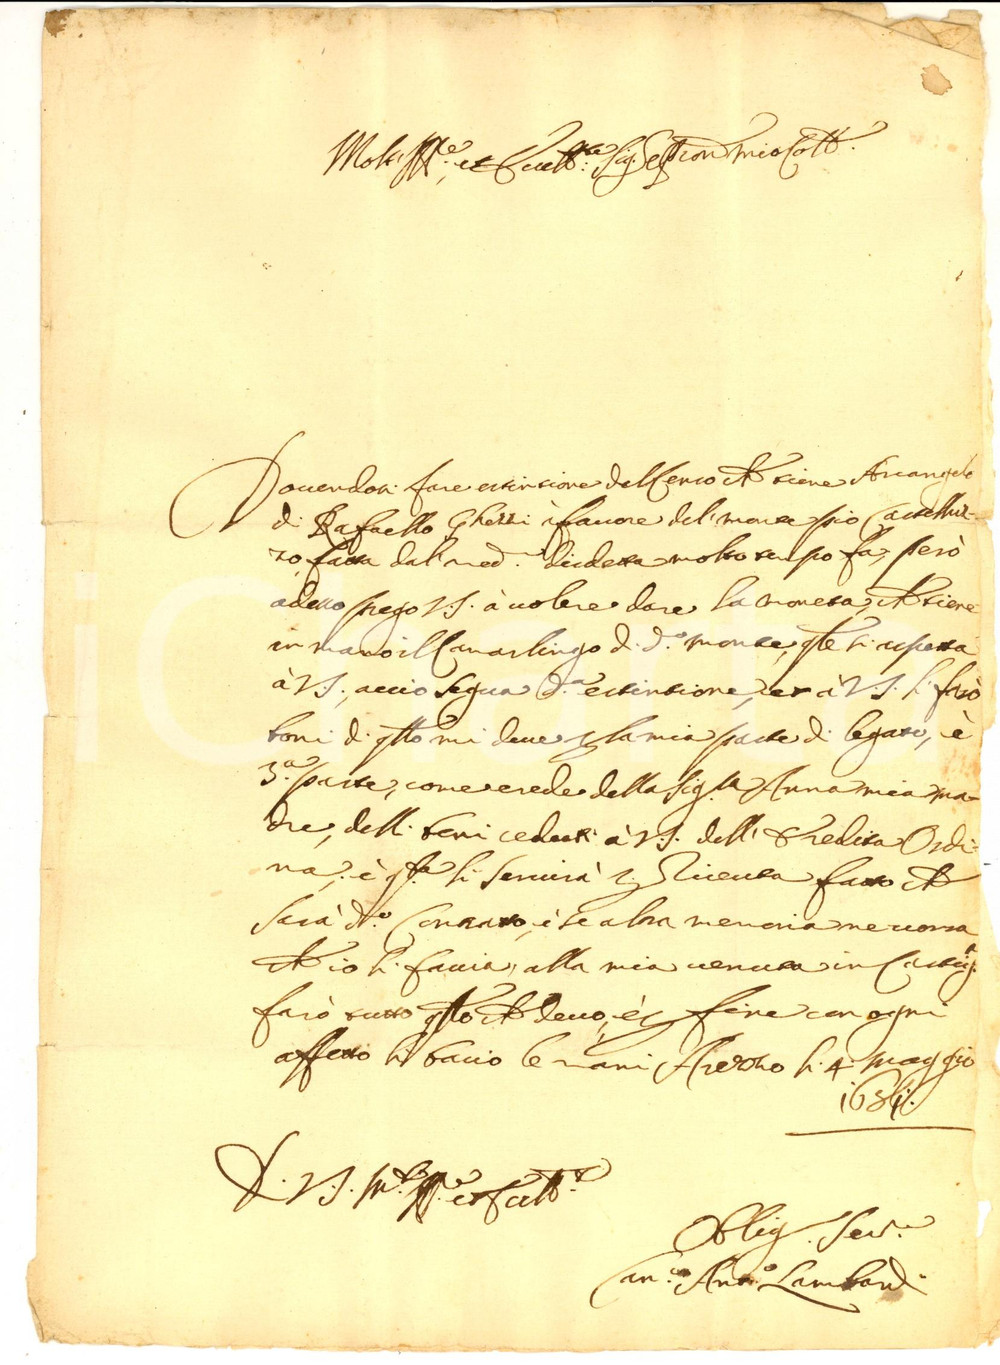 Molt Ill.re et Ecc.mo Sig. mio Coll.
Douendosi fare estintione del Censo che tiene Arcangelo
di Raffaello Ghezzi à fauore del monte pio
fatta dal med.o disdetta molto tempo fà, però
adesso prego V.S. à uolere dare la moneta, che tiene
in mano il Camarlingo di d.o monte, che si aspetta
à V.S., accio segua d.a estintione, et à V.S. li farò
boni di qto mi deue p la mia parte di legato, è
3.a parte, come erede della Sig.ra Anna mia ma-
dre, delli beni ceduti à V.S. dell' eredita Ordi-
na, è qta li seruirà p riceuta fatto che
sarà d.o Contratto, è se altra memoria necorra
che io li faccia, alla mia uenuta in Castig.
farò tutto qto che deuo, è p fine con ogni
affetto li bacio le mani Arezzo li 4 maggio
1684.
D. V.S. M.to Ill.re et Ecc.ma
Oblig. Ser.re
Can.co Ant.o Lambardi
iCharta